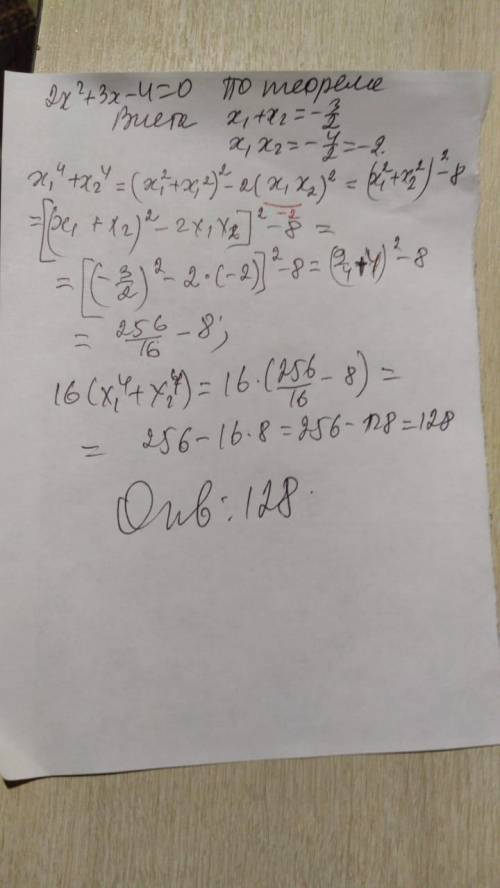 2x²+3x-4=0 По теореме
Виета x₁+x₂=-3/2
x₁x₂=-4/2=-2.
x₁⁴+x₂⁴=(x₁²+x₁²)²-2(x₁x₂)²=(x₁²+x₂²)²-8
=[(x₁+x₂)²-2x₁x₂]²-8=
-2
=[(-3/2)²-2·(-2)]²-8=(9/4+4)²-8
=256/16-8;
16(x₁⁴+x₂⁴)=16·(256/16-8)=
=256-16·8=256-128=128
Отв:128.